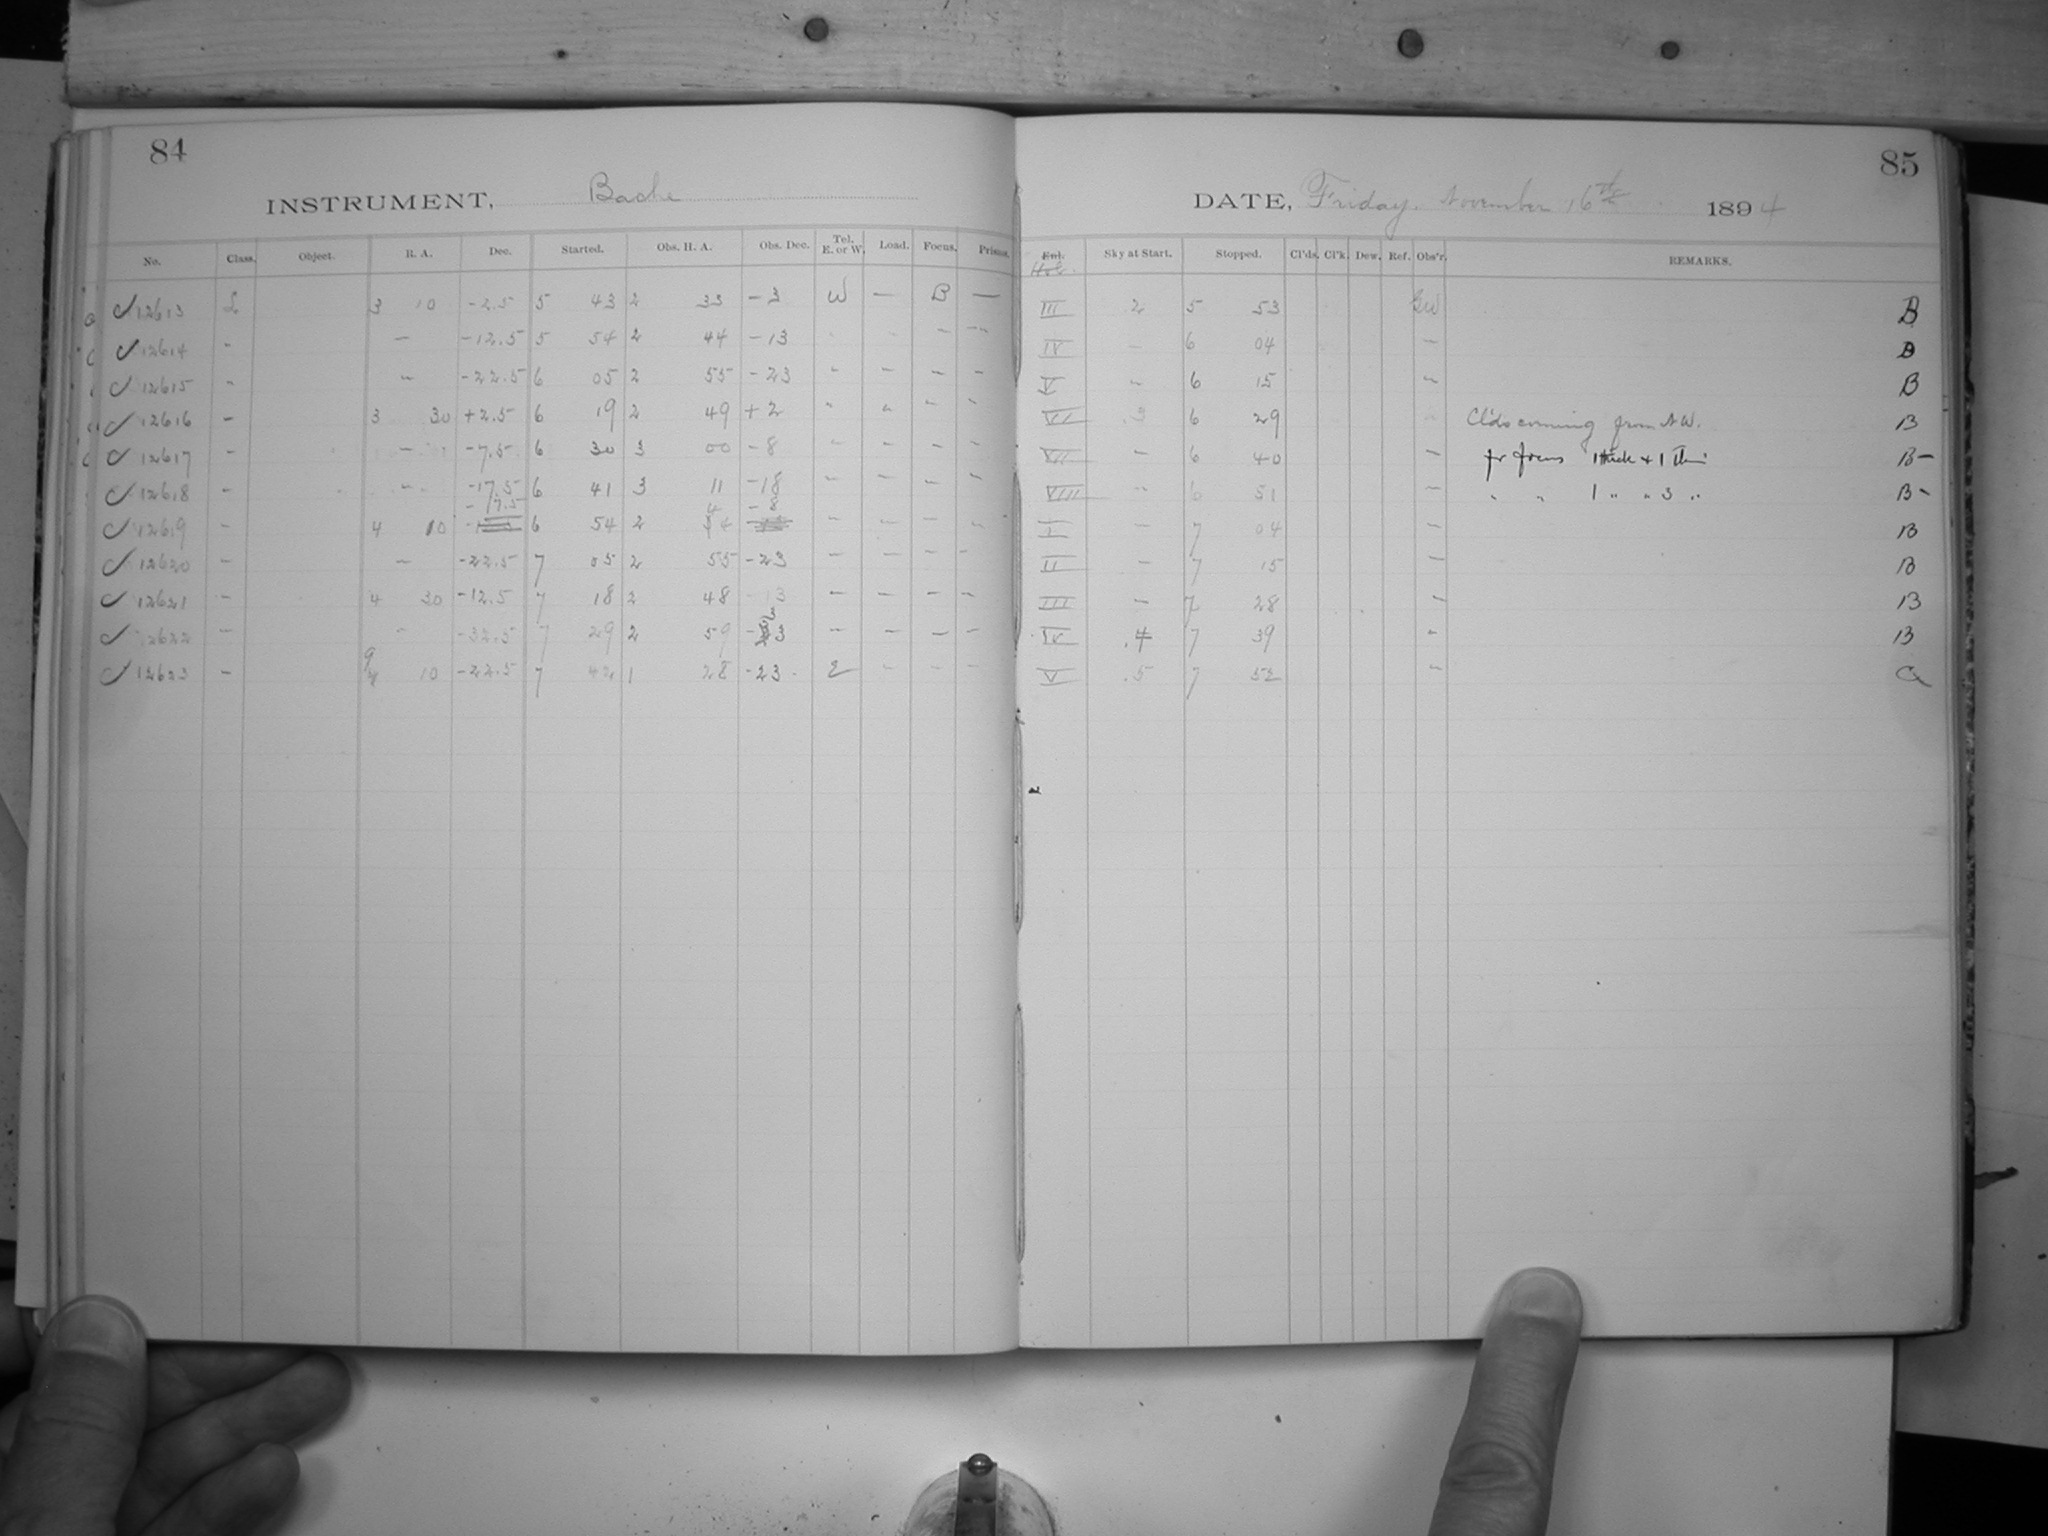 84
INSTRUMENT, Bache
No. Class. Object. R. A. Dec. Started. Obs. H. A. Obs. Dec. Tel. E. or W. Load. Focus. Prisms.
✓ 12613 L 3 10 -2.5 5 43 2 33 -3 W — B —
✓ 12614 " — -12.5 5 54 2 44 -13 " " — —
✓ 12615 " " -22.5 6 05 2 55 -23 " " " "
✓ 12616 — 3 30 +2.5 6 19 2 49 +2 " " " "
✓ 12617 — — -7.5 6 30 3 00 -8 " — — "
✓ 12618 — — -17.5 6 41 3 11 -18 " — — "
✓ 12619 — 4 10 -7.5 6 54 2 44 -8 — — — —
✓ 12620 — — -22.5 7 05 2 55 -23 — — — —
✓ 12621 — 4 30 -12.5 7 18 2 48 -13 — — — —
✓ 12622 — " -32.5 7 29 2 59 -33 — — — —
✓ 12623 — 10 -22.5 7 42 1 28 -23 E — — —
85
DATE, Friday, November 16th 1894
Sky at Start. Stopped. Cl'ds. Cl'k. Dew. Ref. Obs'r. REMARKS.
III 2 5 53 GW B
IV — 6 04 — B
V — 6 15 — B
.3 6 29 " Cl'ds coming from N.W. B
VII — 6 40 — for focus 1 thick & 1 Thin B-
VIII — 6 51 — " " 1 " " 3 " B-
I — 7 04 — B
II — 7 15 — B
III — 7 28 — B
IV .4 7 39 " B
V .5 7 52 —